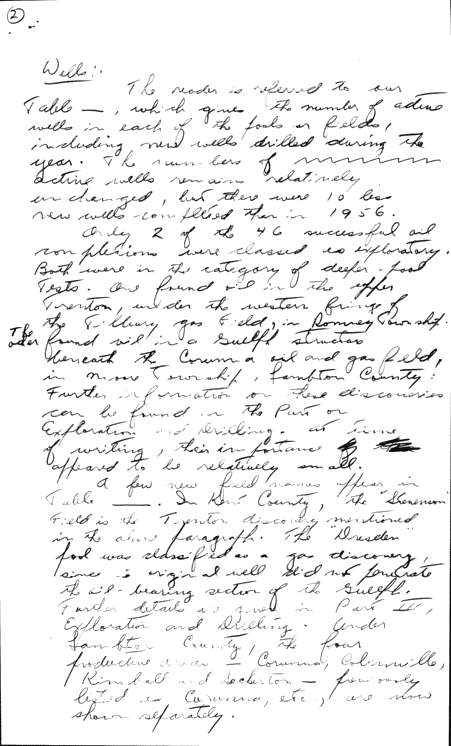 2
Wells:
The reader is referred to our
Table —, which gives the number of active
wells in each of the pools or fields,
including new wells drilled during the
year. The numbers of
active wells remains relatively
unchanged, but there were 10 less
new wells completed than in 1956.
Only 2 of the 46 successful oil
completions were classed as exploratory.
Both were in the category of deeper-pool
Tests. One found oil in the upper
Trenton, under the western fringe of
the Tilbury gas Field, in Romney Township.
The other found oil in a Guelph structure
beneath the Corunna oil and gas field,
in Moore Township, Lambton County.
Further information on these discoveries
can be found in the Part on
Exploration and Drilling. At time
of writing, their importance
appeared to be relatively small.
A few new field names appear in
Table —. In Kent County, the
Field is the Trenton discovery mentioned
in the above paragraph. The "Dresden"
pool was classified as a gas discovery,
since its original well did not penetrate
the oil-bearing section of the Guelph.
Further details are given in Part III,
Exploration and Drilling. Under
Lambton County, the four
productive areas — Corunna, Colinville,
Kimball and Seckerton — previously
listed as Corunna, etc, are now
shown separately.